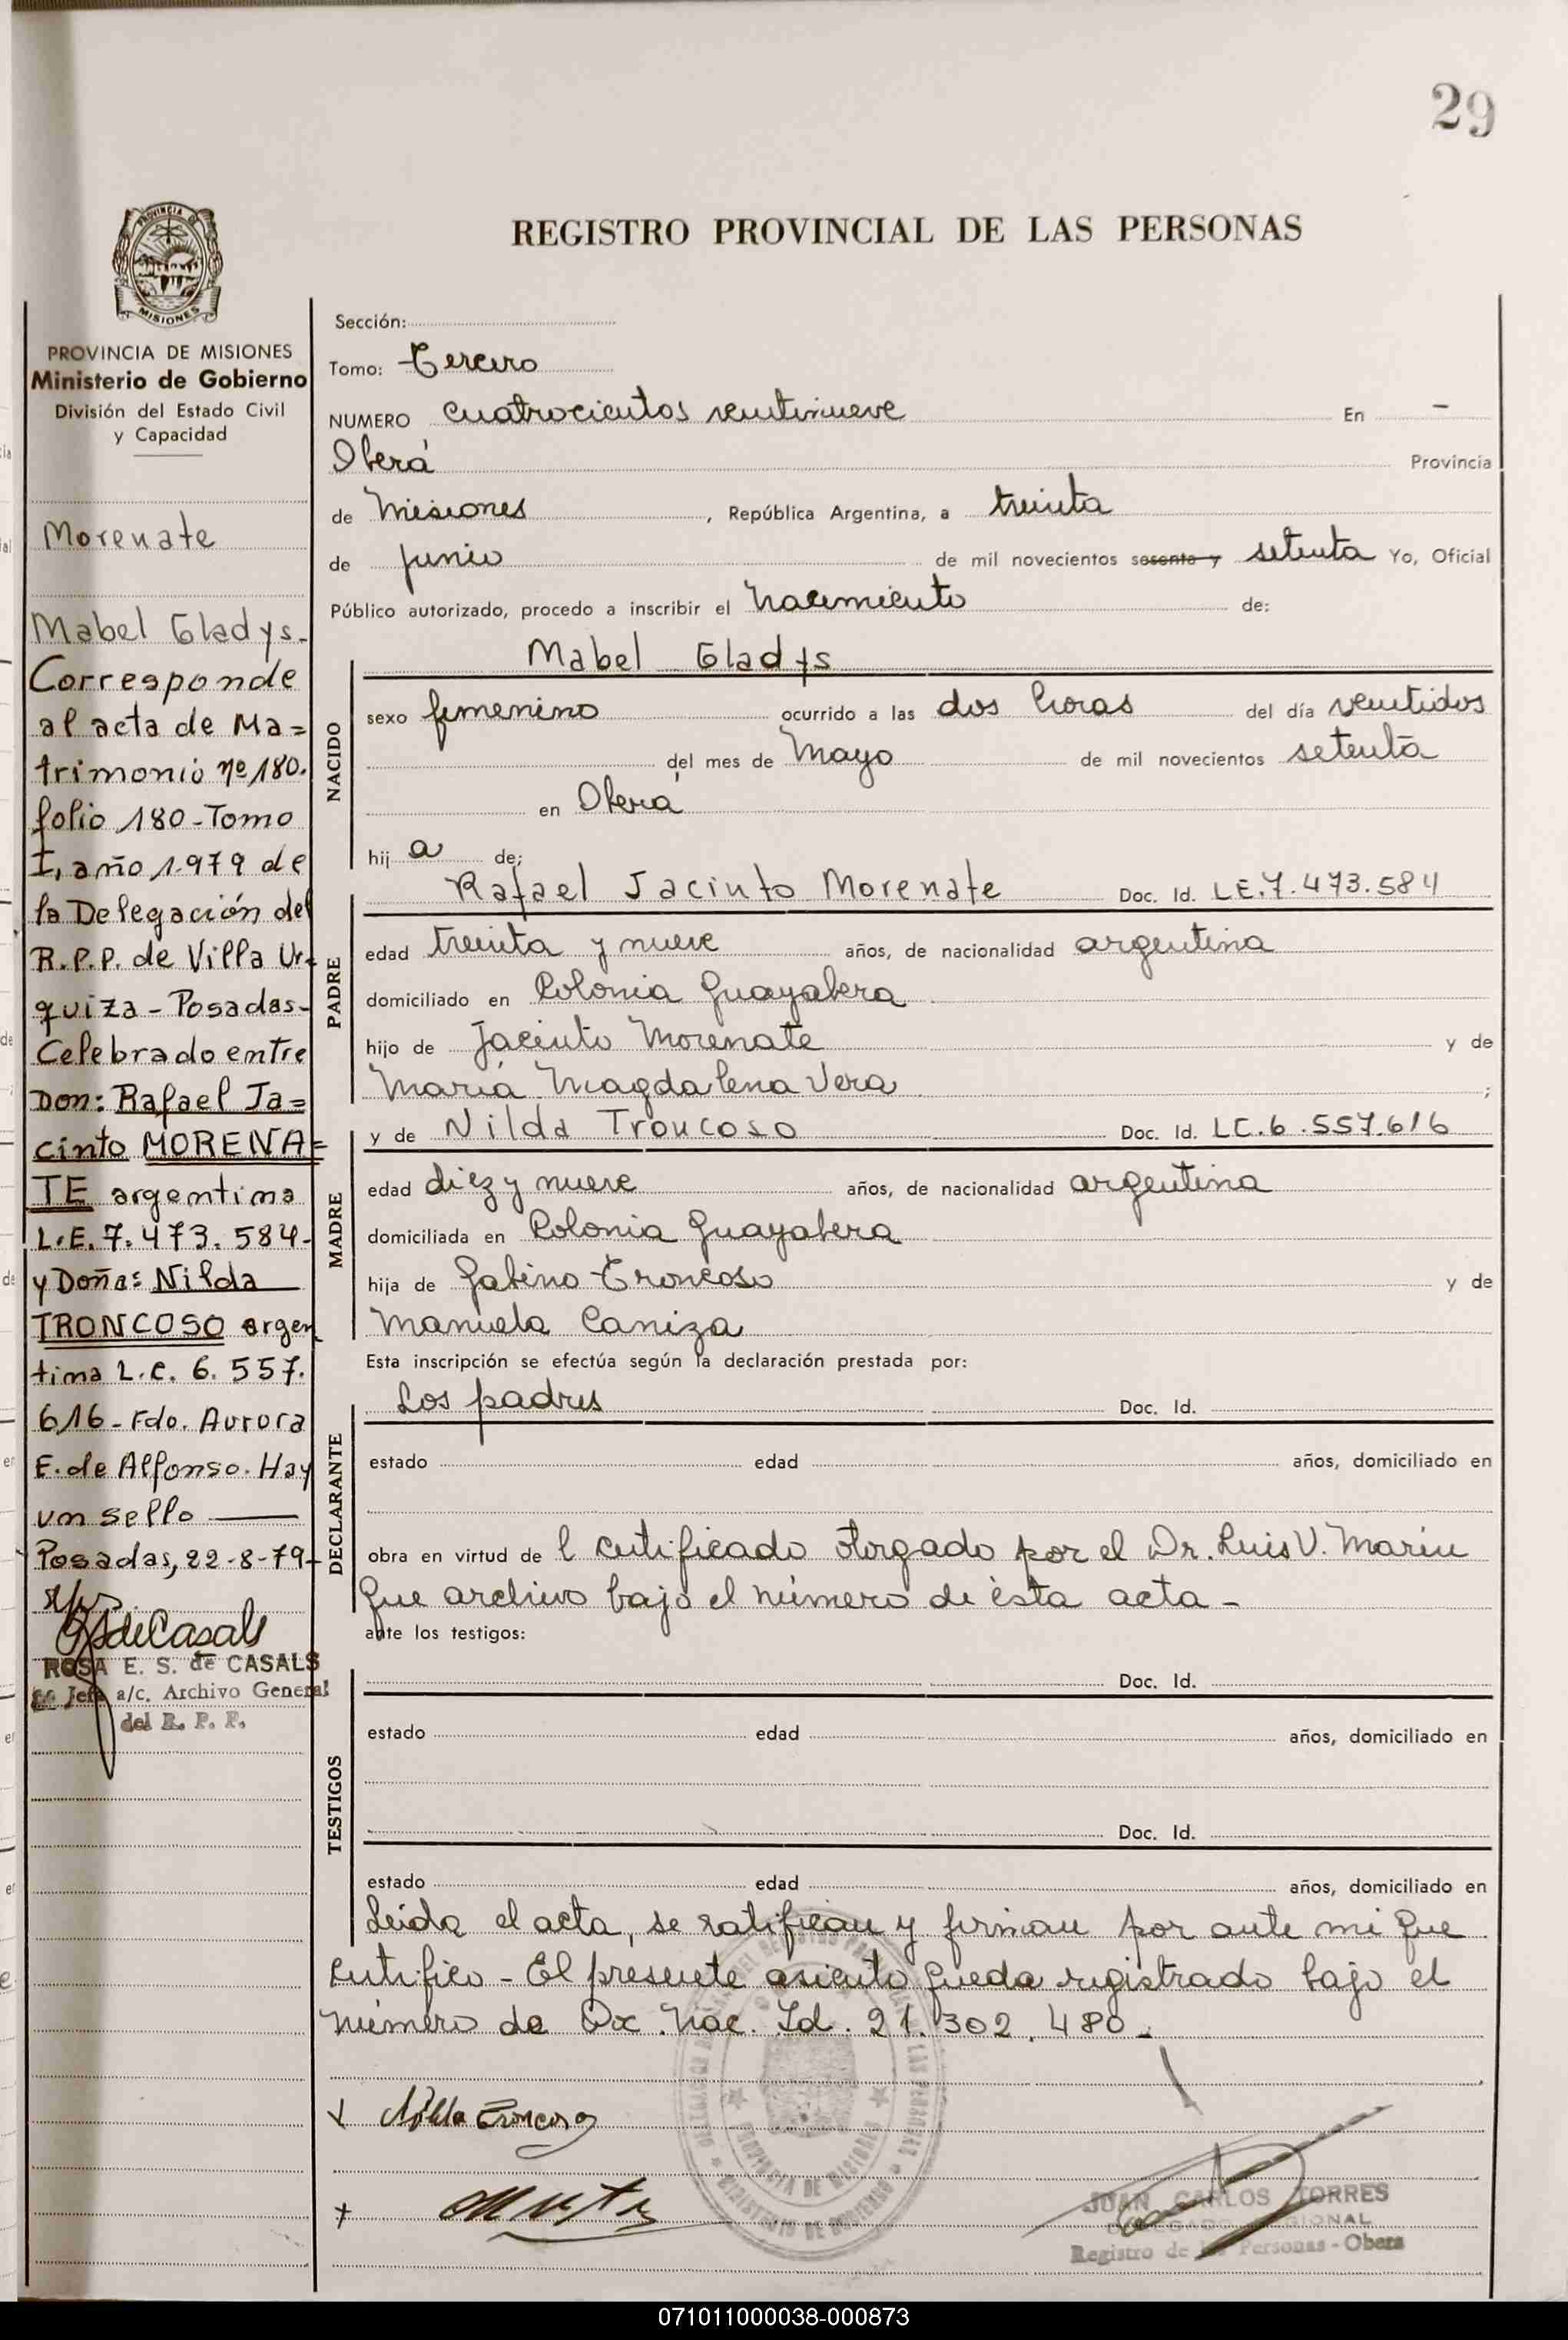 29
REGISTRO PROVINCIAL DE LAS PERSONAS
PROVINCIA DE
MISIONES
PROVINCIA DE MISIONES
Ministerio de Gobierno
División del Estado Civil
y Capacidad
Morenate
Mabel Gladys.
Corresponde
al acta de Ma=
trimonio nº 180.
folio 180 - Tomo
I, año 1.979 de
la Delegación del
R.P.P. de Villa Ur-
quiza - Posadas-
Celebrado entre
Don: Rafael Ja=
cinto MORENA=
TE argentina
L.E. 7.473.584-
y Doña: Nilda
TRONCOSO argen
tina L.C. 6.557.
616 - Fdo. Aurora
E. de Alfonso. Hay
un sello
Posadas, 22-8-79-
ROSA E. S. de CASALS
Jefe a/c. Archivo General
del R. P. P.
Sección:
Tomo: Tercero
NUMERO cuatrocientos veintinueve En -
Oberá Provincia
de Misiones, República Argentina, a treinta
de junio de mil novecientos sesenta y setenta Yo, Oficial
Público autorizado, procedo a inscribir el Nacimiento de:
Mabel Gladys
NACIDO
sexo femenino ocurrido a las dos horas del día veintidos
del mes de Mayo de mil novecientos setenta
en Oberá
hij a de:
Rafael Jacinto Morenate Doc. Id. L.E. 7.473.584
PADRE
edad treinta y nueve años, de nacionalidad argentina
domiciliado en Colonia Guayabera
hijo de Jacinto Morenate y de
María Magdalena Vera ;
y de Nilda Troncoso Doc. Id. L.C. 6.557.616
MADRE
edad diez y nueve años, de nacionalidad argentina
domiciliada en Colonia Guayabera
hija de Gabino Troncoso y de
Manuela Caniza
Esta inscripción se efectúa según la declaración prestada por:
Los padres Doc. Id.
DECLARANTE
estado edad años, domiciliado en
obra en virtud de l certificado otorgado por el Dr. Luis V. Marin
que archivo bajo el número de ésta acta -
ante los testigos:
Doc. Id.
TESTIGOS
estado edad años, domiciliado en
Doc. Id.
estado edad años, domiciliado en
Leída el acta, se ratifican y firman por ante mi que
certifico - El presente asiento queda registrado bajo el
número de Doc. Nac. Id. 21.302.480.
Nilda Troncoso
JUAN CARLOS TORRES
DELEGADO REGIONAL
Registro de las Personas - Oberá
071011000038-000873